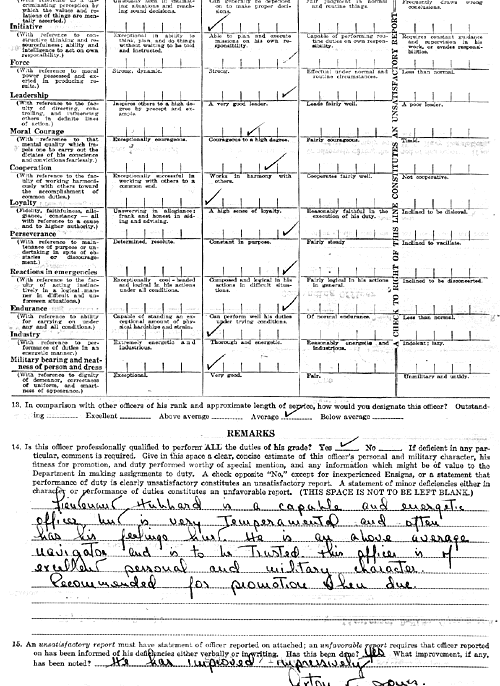 commanding perception by
which the values and re-
lations of things are men-
tally asserted.)
Initiative
(With reference to con-
structive thinking and re-
sourcefulness; ability and
intelligence to act on own
responsibility.)
Exceptional in ability to
think, plan and do things
without waiting to be told
and instructed.
Able to plan and execute
missions on his own re-
sponsibility.
Capable of performing rou-
tine duties on own responsi-
bility.
Requires constant guidance
and supervision in his
work, or evades responsi-
bilities.
Force
(With reference to moral
power possessed and ex-
erted in producing re-
sults.)
Strong, dynamic.
Strong.
Effective under normal and
routine circumstances.
Less than normal.
Leadership
(With reference to the fac-
ulty of directing, con-
trolling, and influencing
others in definite lines
of action.)
Inspires others to a high de-
gree by precept and ex-
ample.
A very good leader.
Leads fairly well.
A poor leader.
Moral Courage
(With reference to that
mental quality which im-
pels one to carry out the
dictates of his conscience
and convictions fearlessly.)
Exceptionally courageous.
Courageous to a high degree.
Fairly courageous.
Timid.
Cooperation
(With reference to the fac-
ulty of working harmoni-
ously with others toward
the accomplishment of
common duties.)
Exceptionally successful in
working with others to a
common end.
Works in harmony with
others.
Cooperates fairly well.
Not cooperative.
Loyalty
(Fidelity, faithfulness, alle-
giance, constancy — all
with reference to a cause
and to higher authority.)
Unswerving in allegiance;
frank and honest in aid-
ing and advising.
A high sense of loyalty.
Reasonably faithful in the
execution of his duty.
Inclined to be disloyal.
Perseverance
(With reference to main-
tenance of purpose or un-
dertaking in spite of ob-
stacles or discourage-
ment.)
Determined, resolute.
Constant in purpose.
Fairly steady
Inclined to vacillate.
Reactions in emergencies
(With reference to the fac-
ulty of acting instinc-
tively in a logical man-
ner in difficult and un-
foreseen situations.)
Exceptionally cool-headed
and logical in his actions
under all conditions.
Composed and logical in his
actions in difficult situa-
tions.
Fairly logical in his actions
in general.
Inclined to be disconcerted.
Endurance
(With reference to ability
for carrying on under
any and all conditions.)
Capable of standing an ex-
ceptional amount of phys-
ical hardships and strain.
Can perform well his duties
under trying conditions.
Of normal endurance.
Less than normal.
Industry
(With reference to per-
formance of duties in an
energetic manner.)
Extremely energetic and
industrious.
Thorough and energetic.
Reasonably energetic and
industrious.
Indolent; lazy.
Military bearing and neat-
ness of person and dress
(With reference to dignity
of demeanor, correctness
of uniform, and smart-
ness of appearance.)
Exceptional.
Very good.
Fair.
Unmilitary and untidy.
A CHECK TO RIGHT OF THIS LINE CONSTITUTES AN UNSATISFACTORY REPORT
13. In comparison with other officers of his rank and approximate length of service, how would you designate this officer? Outstand-
ing Excellent Above average Average Below average
REMARKS
14. Is this officer professionally qualified to perform ALL the duties of his grade? Yes No If deficient in any par-
ticular, comment is required. Give in this space a clear, concise estimate of this officer's personal and military character, his
fitness for promotion, and duty performed worthy of special mention, and any information which might be of value to the
Department in making assignments to duty. A check opposite to "No," except for inexperienced Ensigns, or a statement that
performance of duty is clearly unsatisfactory constitutes an unsatisfactory report. A statement of minor deficiencies in either
character or performance of duties constitutes an unfavorable report. (THIS SPACE IS NOT TO BE LEFT BLANK.)
Lieutenant Hubbard is a capable and energetic
officer but is very temperamental and often
has his feelings hurt. He is an above average
navigator and is to be trusted. This officer is of
excellent personal and military character.
Recommended for promotion when due.
15. An unsatisfactory report must have statement of officer reported on attached; an unfavorable report requires that officer reported
on has been informed of his deficiencies either verbally or in writing. Has this been done? Yes What improvement, if any,
has been noted? He has improved impressively